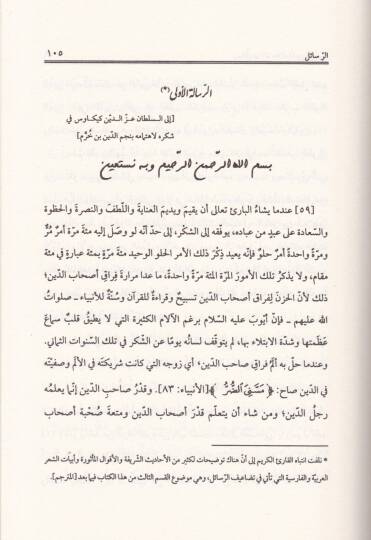 الرّسائل ١٠٥
الرّسالة الأولى (*)
[إلى السلطان عزّ الدّين كيكاوس في
شكره لاهتمامه بنجم الدّين بن خُرَّم]
بسم الله الرّحمن الرّحيم وبه نستعين
[٥٩] عندما يشاءُ البارئ تعالى أن يقيمَ ويديمَ العنايةَ واللّطفَ والنصرةَ والحظوة
والسّعادة على عبدٍ من عباده، يوفّقه إلى الشّكر، إلى حدّ أنّه لو وصَلَ إليه مئة مرّة أمرٌ مُرٌّ
ومرّة واحدة أمرٌ حلوٌ فإنّه يعيد ذِكْرَ ذلك الأمر الحلو الوحيد مئةَ مرّةٍ بمئة عبارةٍ في مئة
مقام، ولا يذكرُ تلك الأمورَ المرّة المئة مرّةً واحدةً، ما عدا مرارةَ فِراقِ أصحاب الدّين؛
ذلك لأنّ الحزنَ لِفراق أصحاب الدّين تسبيحٌ وقراءةٌ للقرآن وسُنّةٌ للأنبياء ـ صلواتُ
الله عليهم ـ فإنّ أيّوبَ عليه السّلام برغم الآلام الكثيرة التي لا يطيقُ قلبٌ سماعَ
عَظَمتها وشدّة الابتلاء بها، لم يتوقّف لسانُه يومًا عن الشّكر في تلك السّنوات الثّماني.
وعندما حلّ به ألمُ فراق صاحب الدّين؛ أي زوجته التي كانت شريكتَه في الألم وصفيّتَه
في الدّين صاح: ﴿مَسَّنِيَ ٱلضُّرُّ﴾ [الأنبياء: ٨٣]. وقدْرُ صاحبِ الدّين إنّما يعلمُه
رجلُ الدّين؛ ومن شاء أن يتعلّم قَدْرَ أصحاب الدّين ومتعةَ صُحْبة أصحاب
* نلفت انتباه القارئ الكريم إلى أنّ هناك توضيحات لكثير من الأحاديث الشّريفة والأقوال المأثورة وأبيات الشعر
العربيّة والفارسية التي تأتي في تضاعيف الرّسائل، وهي موضوع القسم الثالث من هذا الكتاب فيما بعد [المترجم].